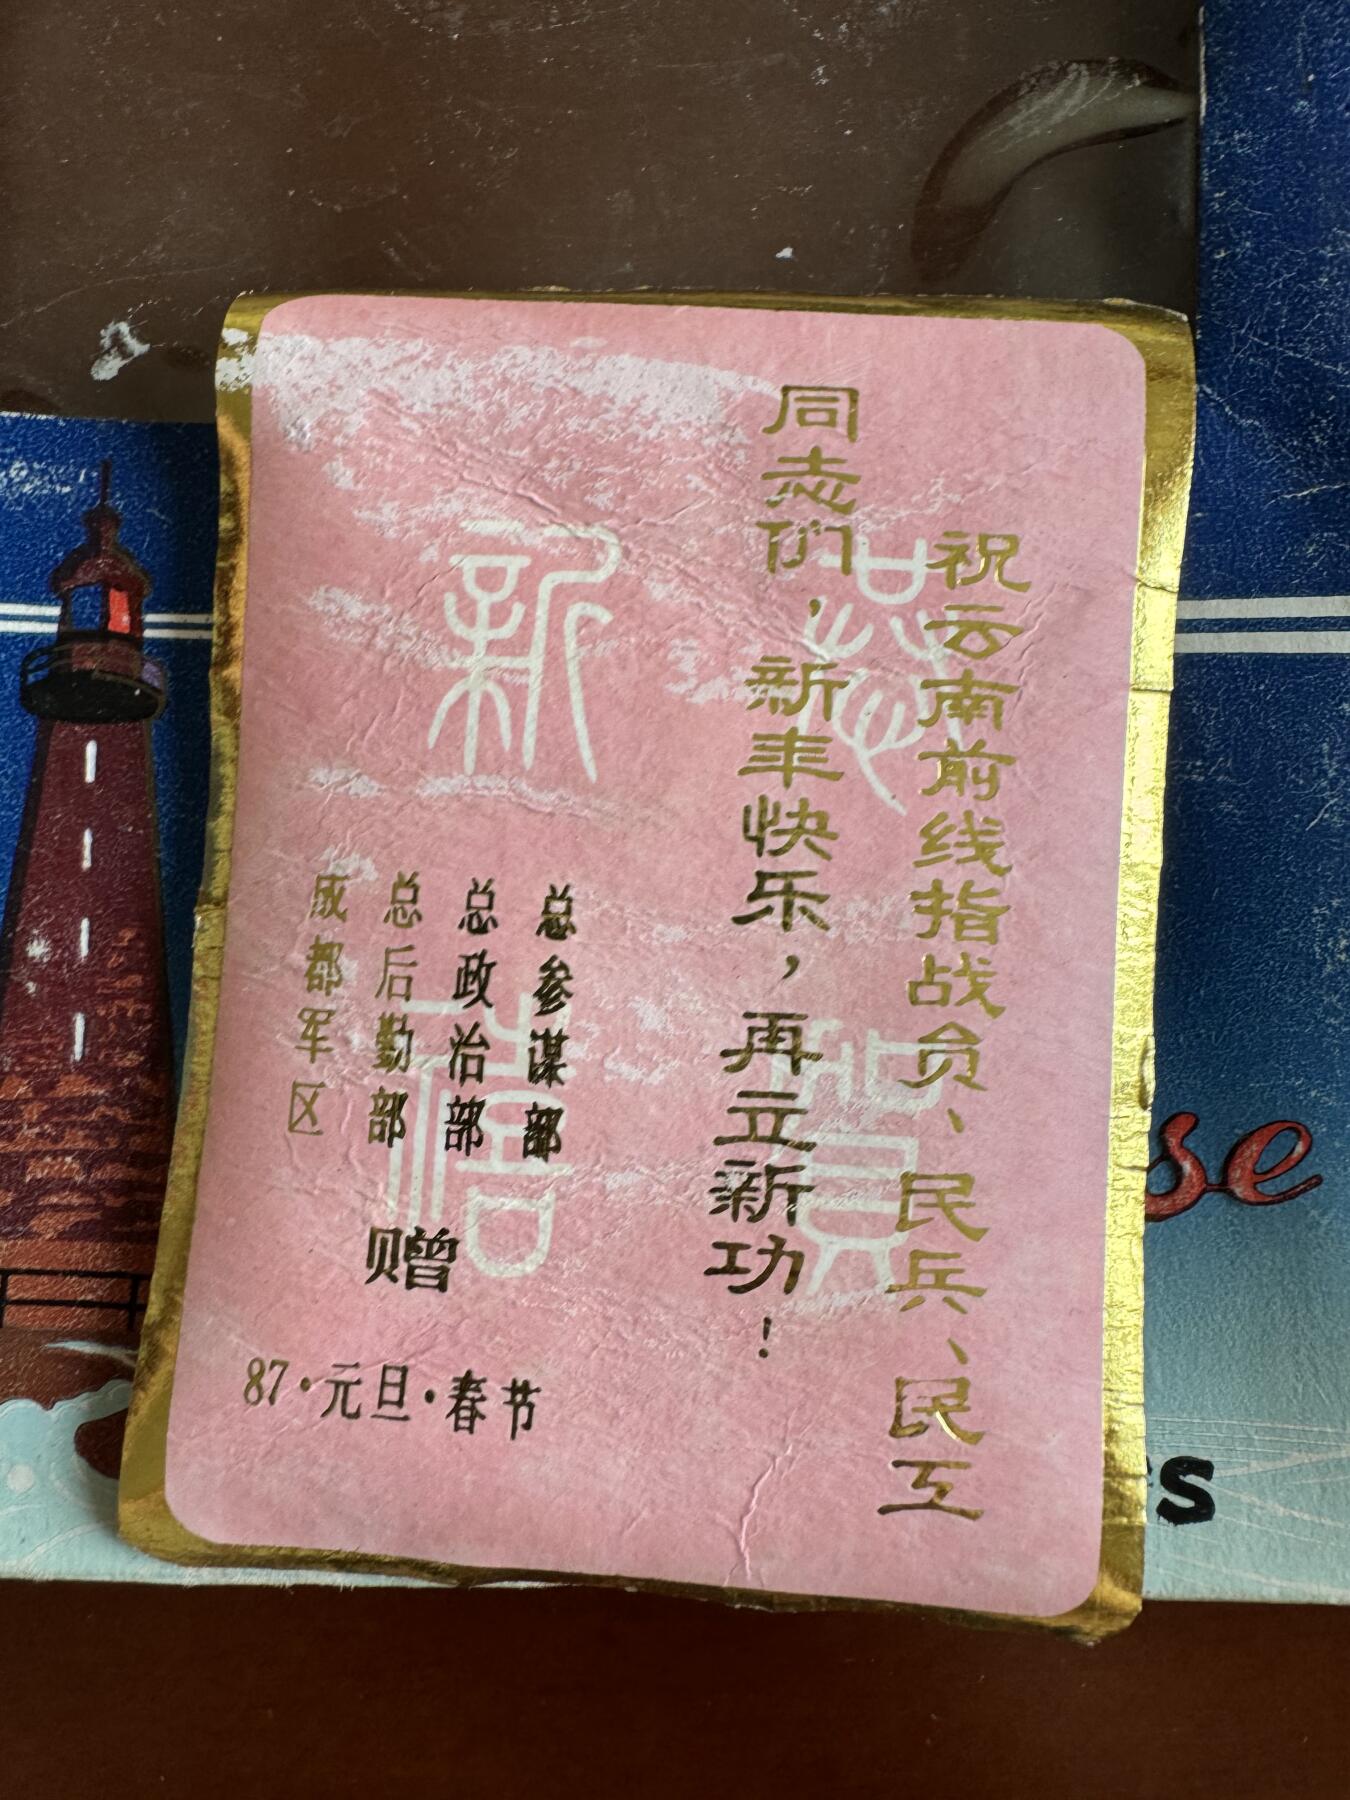 祝云南前线指战员、民兵、民工
同志们，新年快乐，再立新功！
恭贺
新禧
总参谋部
总政治部
总后勤部
成都军区
赠
87·元旦·春节
se
s